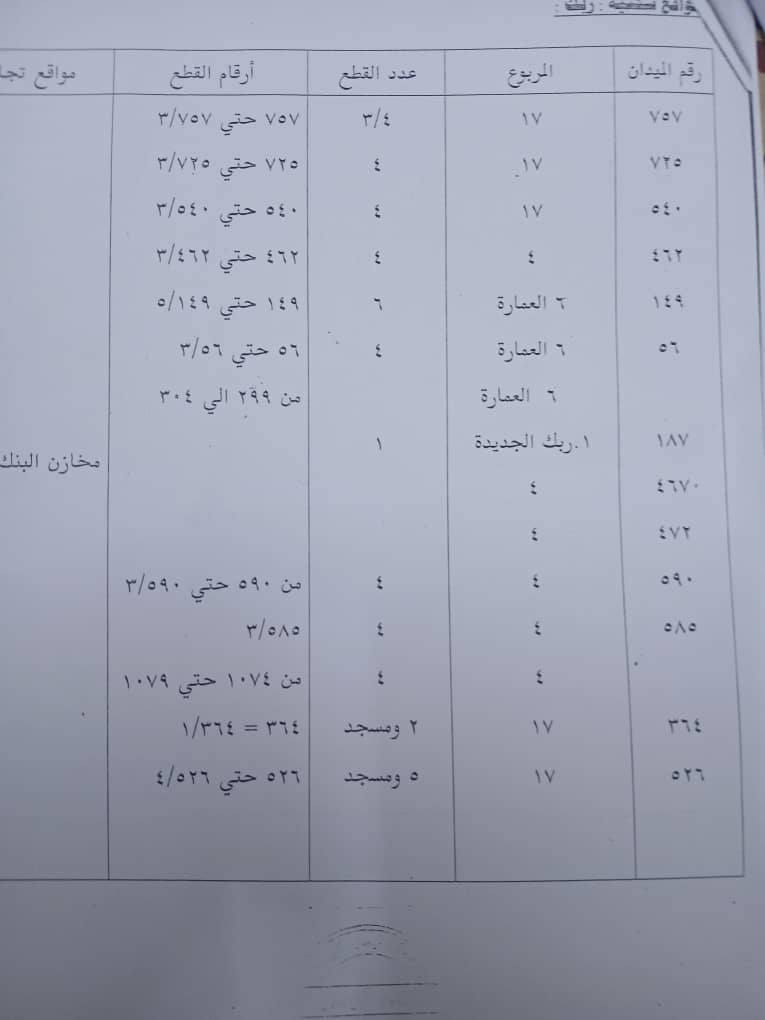 مواقع سكنية : ربك :
رقم الميدان المربوع عدد القطع أرقام القطع مواقع تجا
٧٥٧ ١٧ ٣/٤ ٧٥٧ حتي ٣/٧٥٧
٧٢٥ ١٧ ٤ ٧٢٥ حتي ٣/٧٢٥
٥٤٠ ١٧ ٤ ٥٤٠ حتي ٣/٥٤٠
٤٦٢ ٤ ٤ ٤٦٢ حتي ٣/٤٦٢
١٤٩ ٦ العمارة ٦ ١٤٩ حتي ٥/١٤٩
٥٦ ٦ العمارة ٤ ٥٦ حتي ٣/٥٦
٦ العمارة من ٢٩٩ الي ٣٠٤
١٨٧ ١.ربك الجديدة ١ مخازن البنك
٤٦٧٠ ٤
٤٧٢ ٤
٥٩٠ ٤ ٤ من ٥٩٠ حتي ٣/٥٩٠
٥٨٥ ٤ ٤ ٣/٥٨٥
٤ ٤ من ١٠٧٤ حتي ١٠٧٩
٣٦٤ ١٧ ٢ ومسجد ٣٦٤ = ١/٣٦٤
٥٢٦ ١٧ ٥ ومسجد ٥٢٦ حتي ٤/٥٢٦